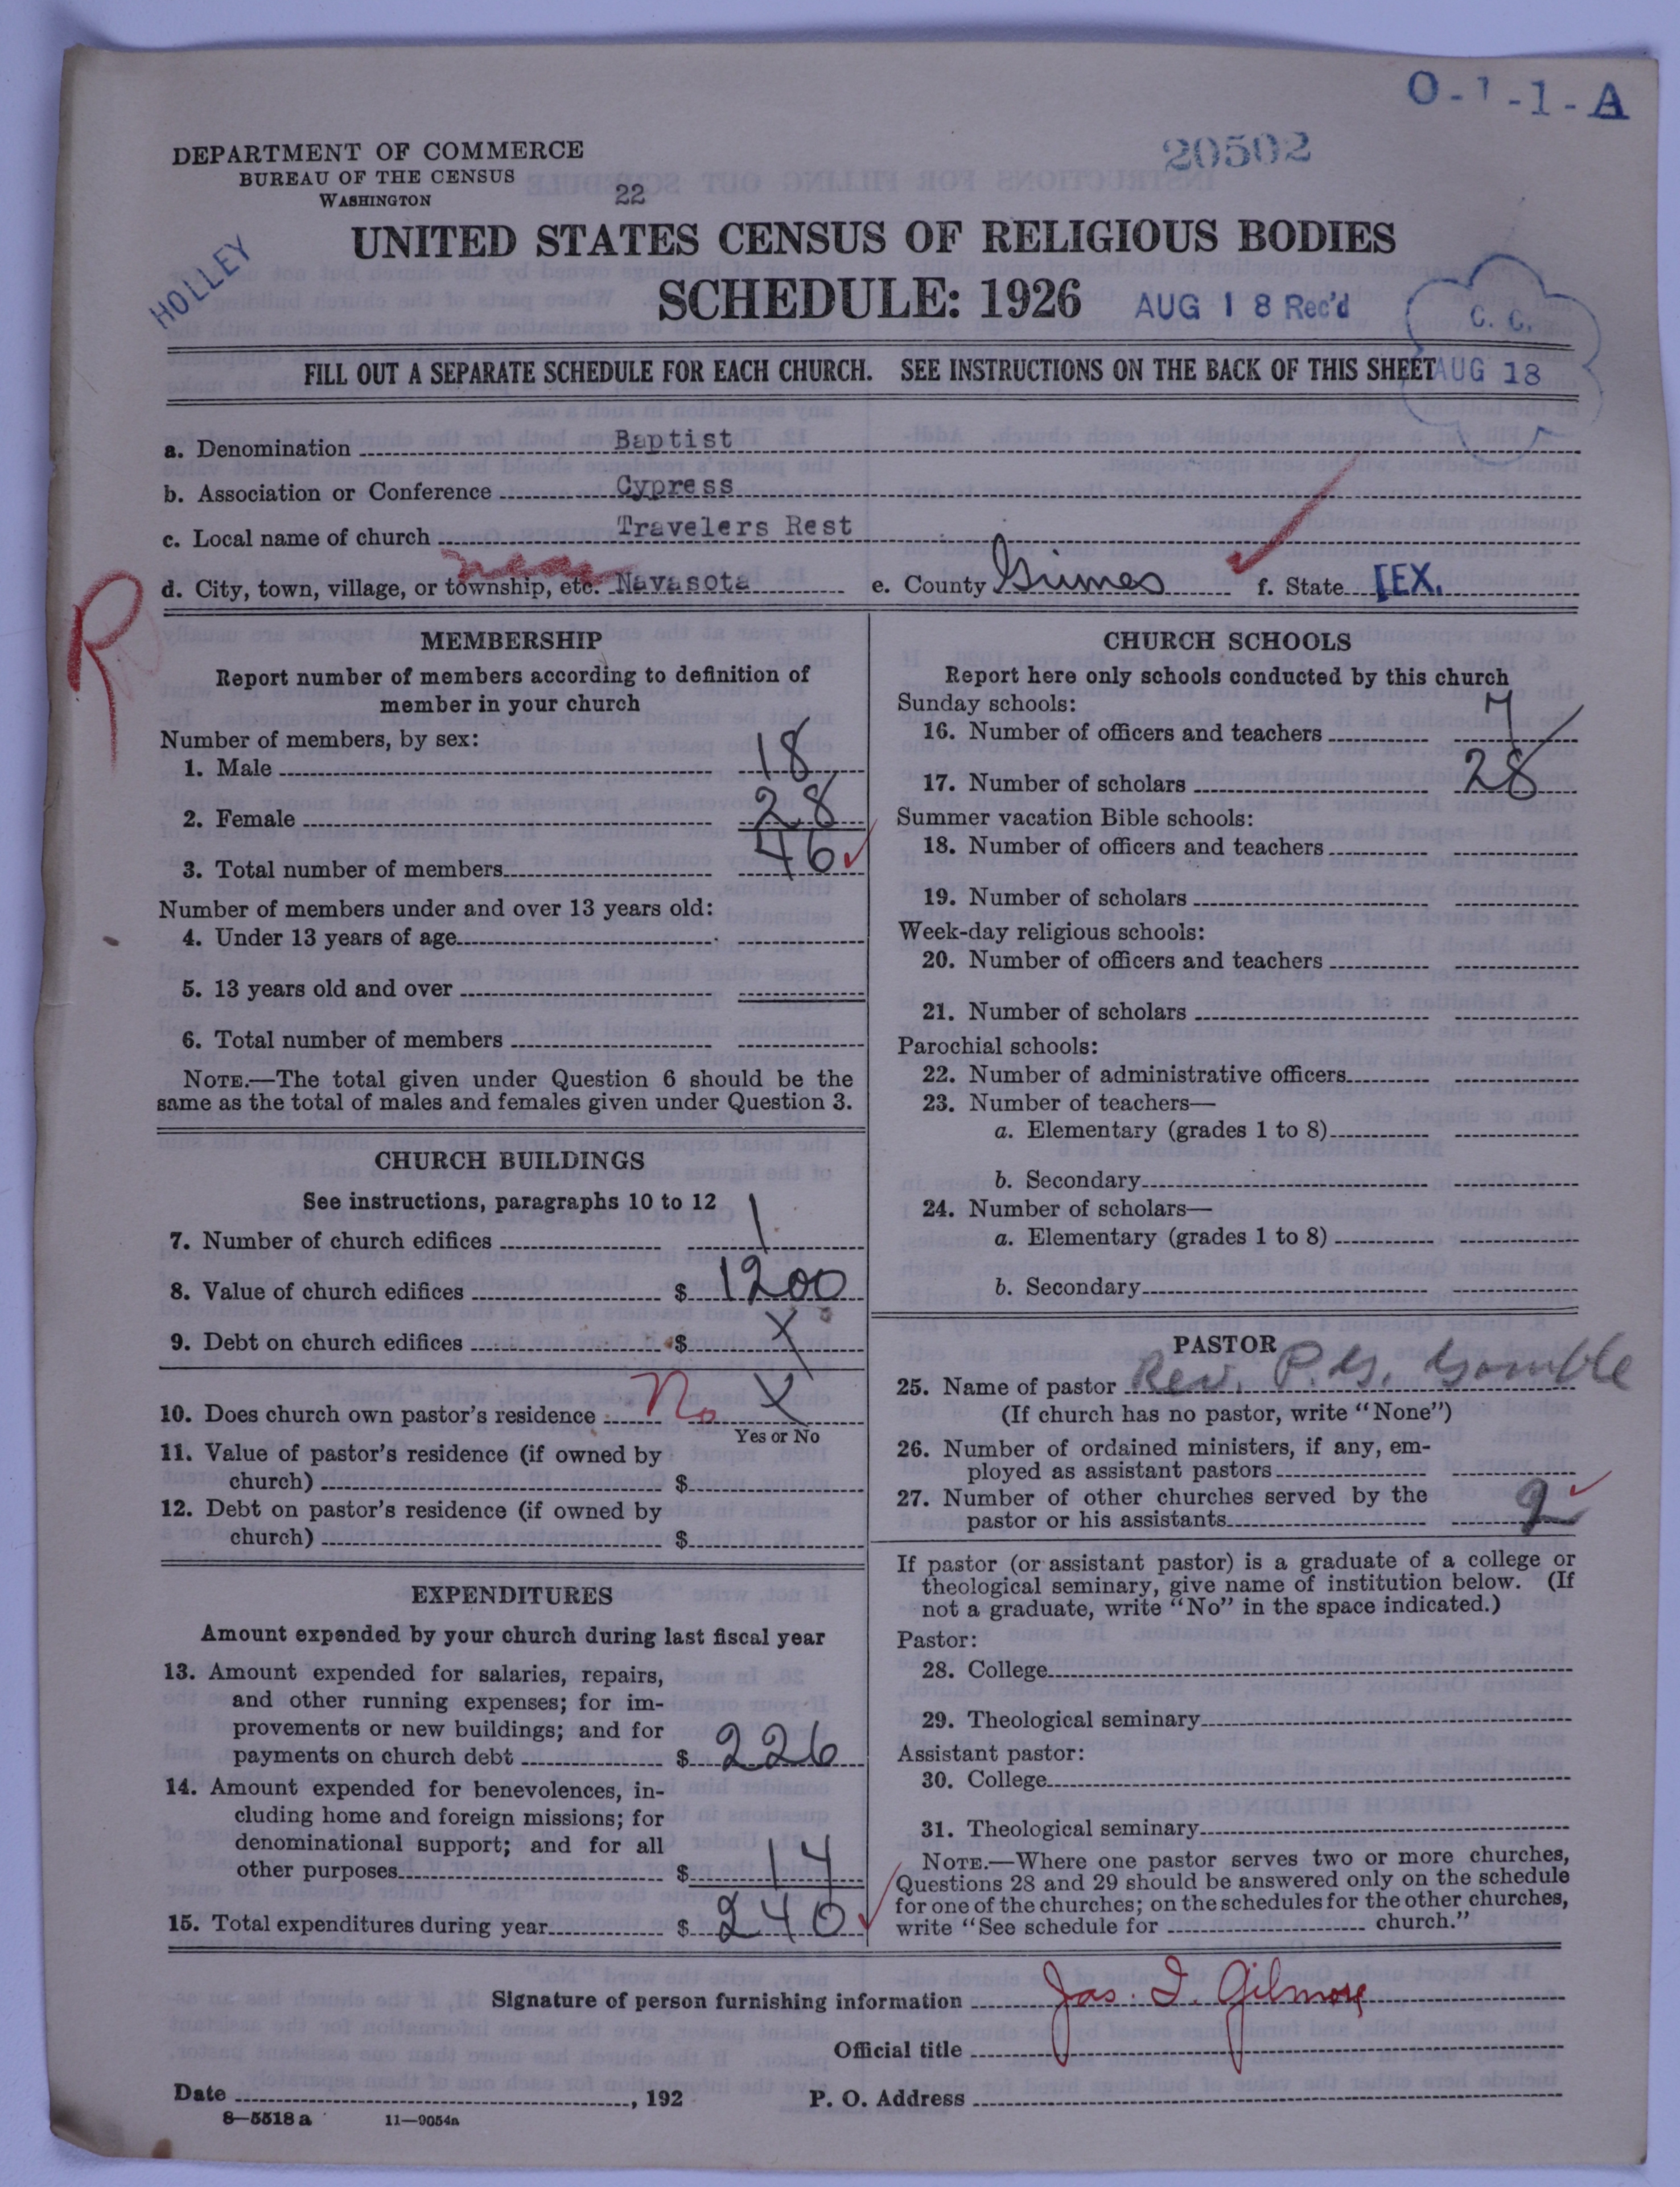 O-1-1-A
20502
DEPARTMENT OF COMMERCE
BUREAU OF THE CENSUS
WASHINGTON
22
UNITED STATES CENSUS OF RELIGIOUS BODIES
HOLLEY
SCHEDULE: 1926
AUG 18 Rec'd
C. C.
AUG 18
FILL OUT A SEPARATE SCHEDULE FOR EACH CHURCH. SEE INSTRUCTIONS ON THE BACK OF THIS SHEET
a. Denomination Baptist
b. Association or Conference Cypress
c. Local name of church Travelers Rest
d. City, town, village, or township, etc. near Navasota e. County Grimes f. State TEX.
R
MEMBERSHIP
Report number of members according to definition of
member in your church
Number of members, by sex:
1. Male 18
2. Female 28
3. Total number of members 46
Number of members under and over 13 years old:
4. Under 13 years of age
5. 13 years old and over
6. Total number of members
NOTE.—The total given under Question 6 should be the
same as the total of males and females given under Question 3.
CHURCH BUILDINGS
See instructions, paragraphs 10 to 12
7. Number of church edifices 1
8. Value of church edifices $ 1200
9. Debt on church edifices $ X
10. Does church own pastor's residence No X
Yes or No
11. Value of pastor's residence (if owned by
church) $
12. Debt on pastor's residence (if owned by
church) $
EXPENDITURES
Amount expended by your church during last fiscal year
13. Amount expended for salaries, repairs,
and other running expenses; for im-
provements or new buildings; and for
payments on church debt $ 226
14. Amount expended for benevolences, in-
cluding home and foreign missions; for
denominational support; and for all
other purposes $ 14
15. Total expenditures during year $ 240
CHURCH SCHOOLS
Report here only schools conducted by this church
Sunday schools:
16. Number of officers and teachers 7
17. Number of scholars 28
Summer vacation Bible schools:
18. Number of officers and teachers
19. Number of scholars
Week-day religious schools:
20. Number of officers and teachers
21. Number of scholars
Parochial schools:
22. Number of administrative officers
23. Number of teachers—
a. Elementary (grades 1 to 8)
b. Secondary
24. Number of scholars—
a. Elementary (grades 1 to 8)
b. Secondary
PASTOR
25. Name of pastor Rev. P. G. Gamble
(If church has no pastor, write "None")
26. Number of ordained ministers, if any, em-
ployed as assistant pastors
27. Number of other churches served by the
pastor or his assistants 2
If pastor (or assistant pastor) is a graduate of a college or
theological seminary, give name of institution below. (If
not a graduate, write "No" in the space indicated.)
Pastor:
28. College
29. Theological seminary
Assistant pastor:
30. College
31. Theological seminary
NOTE.—Where one pastor serves two or more churches,
Questions 28 and 29 should be answered only on the schedule
for one of the churches; on the schedules for the other churches,
write "See schedule for church."
Signature of person furnishing information Jas. I. Gilmore
Official title
Date , 192 P. O. Address
8—5518 a 11—9054a